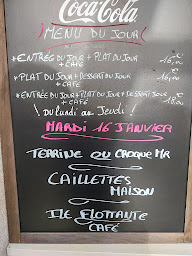 Coca-Cola
MENU DU JOUR
* ENTRÉE DU JOUR + PLAT DU JOUR
+ CAFÉ
* PLAT DU JOUR + DESSERT DU JOUR
+ CAFÉ
* ENTRÉE DU JOUR + PLAT DU JOUR + DESSERT DU JOUR
+ CAFÉ
! DU lundi au Jeudi !
MARDI 16 JANVIER
TERRINE OU CROQUE MR
CAILLETTES
MAISON
ILE FLOTTANTE
CAFÉ